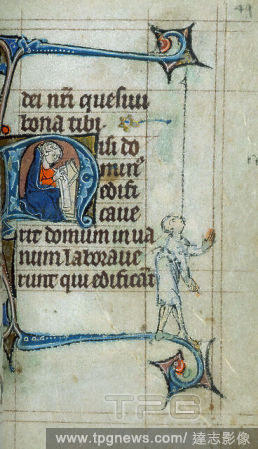 49
dei nr̄i quesiui
bona tibi.
Nisi do
minꝰ
edifi
caue
rit domum in ua
num laboraue
runt qui edificāt
TPG
www.tpgnews.com/達志影像